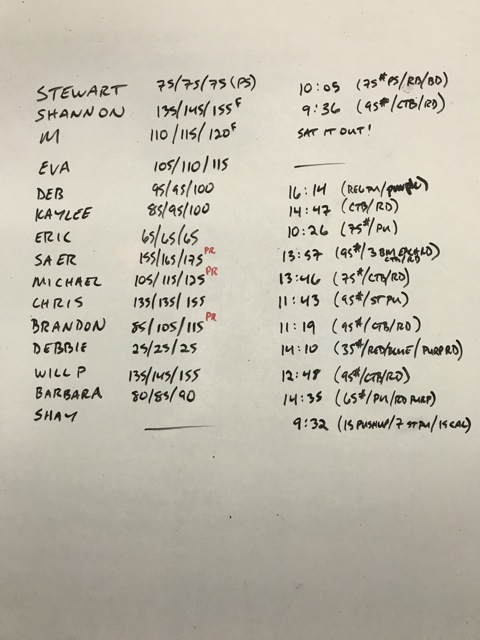 STEWART 75/75/75 (PS) 10:05 (75# PS/RB/BD)
SHANNON 135/145/155F 9:36 (95#/CTB/RD)
M 110/115/120F SAT IT OUT!
EVA 105/110/115
DEB 95/95/100 16:14 (REG PU/purple)
KAYLEE 85/95/100 14:47 (CTB/RD)
ERIC 65/65/65 10:26 (75#/PU)
SAER 155/165/175 PR 13:57 (95#/3 BM EACH RD CTB/RD)
MICHAEL 105/115/125 PR 13:46 (75#/CTB/RD)
CHRIS 135/135/155 11:43 (95#/ST PU)
BRANDON 85/105/115 PR 11:19 (95#/CTB/RD)
DEBBIE 25/25/25 14:10 (35#/RED/BLUE/PURP RD)
WILL P 135/145/155 12:48 (95#/CTB/RD)
BARBARA 80/85/90 14:35 (65#/PU/RD PURP)
SHAY 9:32 (15 PUSHUP/7 ST PU/15 CAL)